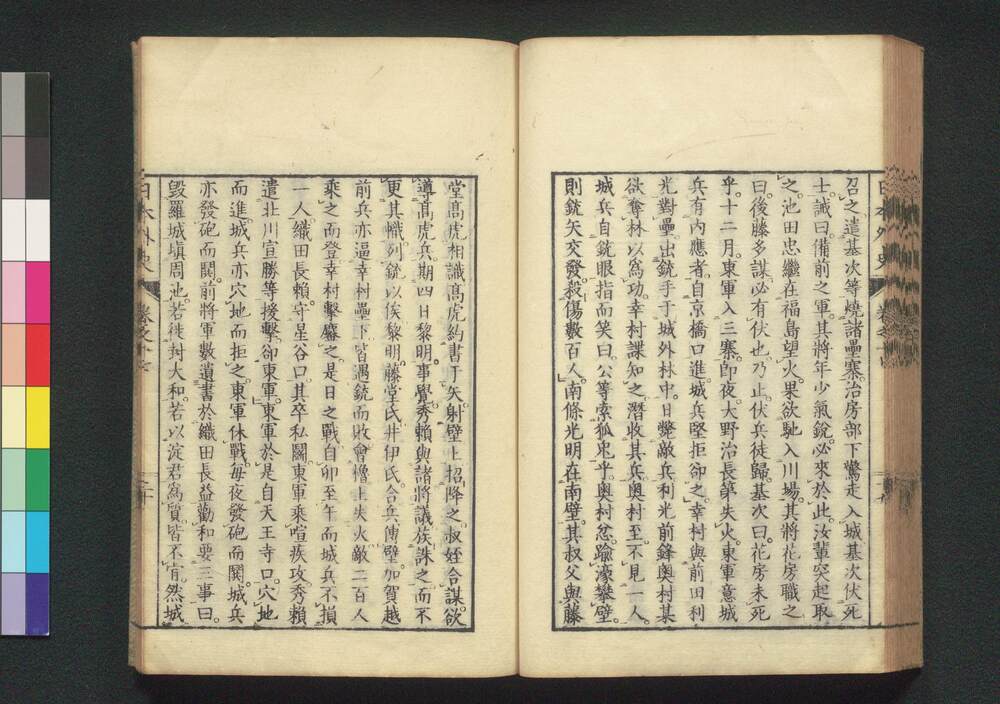 召之遣基次等燒諸壘寨治房部下驚走入城基次伏死
士誡曰備前之軍其將年少氣銳必來於此汝輩突起取
之池田忠繼在福島望火果欲馳入川場其將花房職之
曰後藤多謀必有伏也乃止伏兵徒歸基次曰花房未死
乎十二月東軍入三寨卽夜大野治長第失火東軍意城
兵有內應者自京橋口進城兵堅拒卻之幸村與前田利
光對壘出銃手于城外林中日斃敵兵利光前鋒奧村某
欲奪林以爲功幸村諜知之潛收其兵奧村至不見一人
城兵自銃眼指而笑曰公等索狐兎乎奧村忿踰濠攀壁
則銃矢交發殺傷數百人南條光明在南壁其叔父與藤
堂高虎相識高虎約書于矢射壁上招降之叔姪合謀欲
導高虎兵期四日黎明事覺秀賴與諸將議族誅之而不
更其幟列銃以俟黎明藤堂氏井伊氏合兵傳壁加賀越
前兵亦逼幸村壘下皆遇銃而敗會櫓上失火敵二百人
乘之而登幸村擊鏖之是日之戰自卯至午而城兵不損
一人織田長賴守星谷口其卒私鬭東軍乘喧疾攻秀賴
遣北川宣勝等援擊卻東軍東軍於是自天王寺口穴地
而進城兵亦穴地而拒之東軍休戰每夜發砲而鬨城兵
亦發砲而鬨前將軍數遺書於織田長益勸和要三事曰
毀羅城塡周池若徙封大和若以淀君爲質皆不肯然城